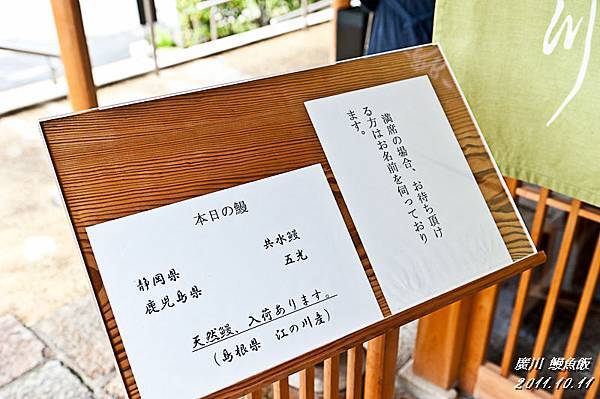 本日の鰻
静岡県 共水鰻
鹿児島県 五光
天然鰻、入荷あります。
(島根県 江の川産)
満席の場合、お待ち頂け
る方はお名前を伺っており
ます。
川
廣川 鰻魚飯
2011.10.11